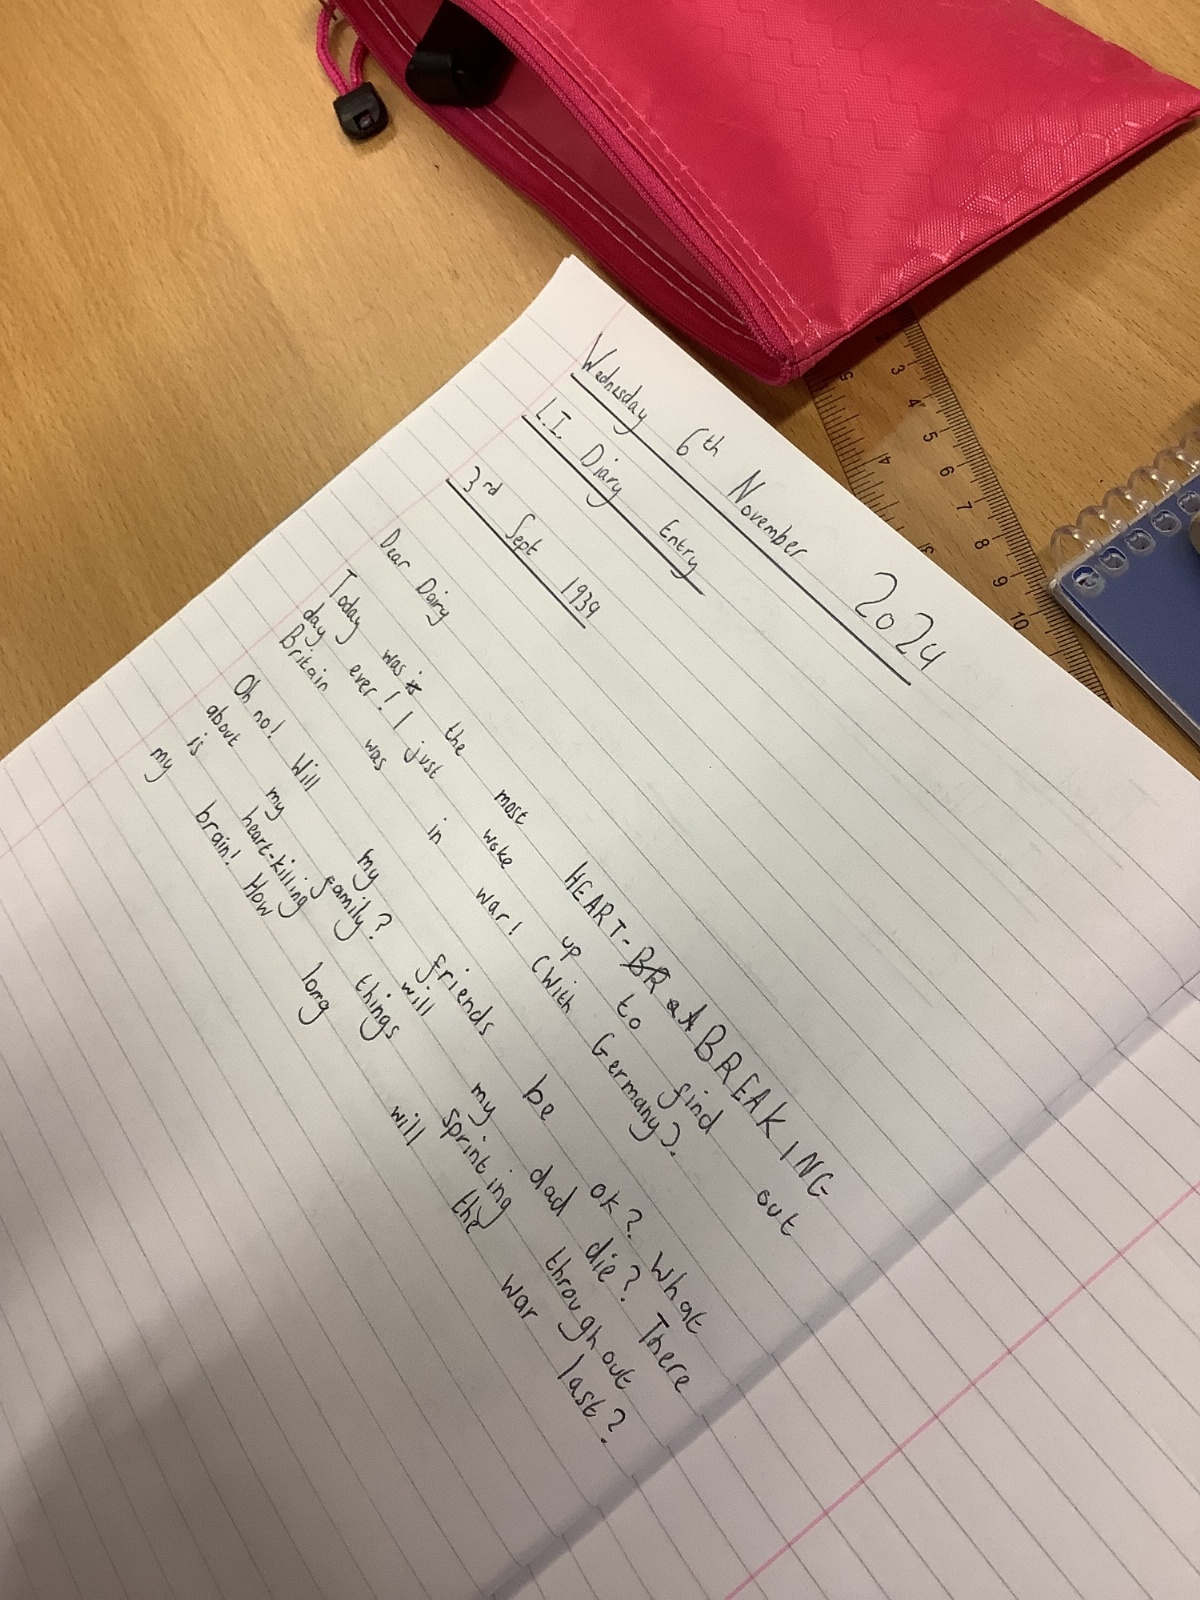 Wednesday 6th November 2024
L.I. Diary Entry
3rd Sept 1939
Dear Dairy
Today was the most HEART-BREAKING
day ever! I just woke up to find out
Britain was in war! (With Germany).
Oh no! Will my friends be ok? What
about my family? will my dad die? There
is heart-killing things sprinting throughout
my brain! How long will the war last?
2
3
4
5
6
7
8
9
10